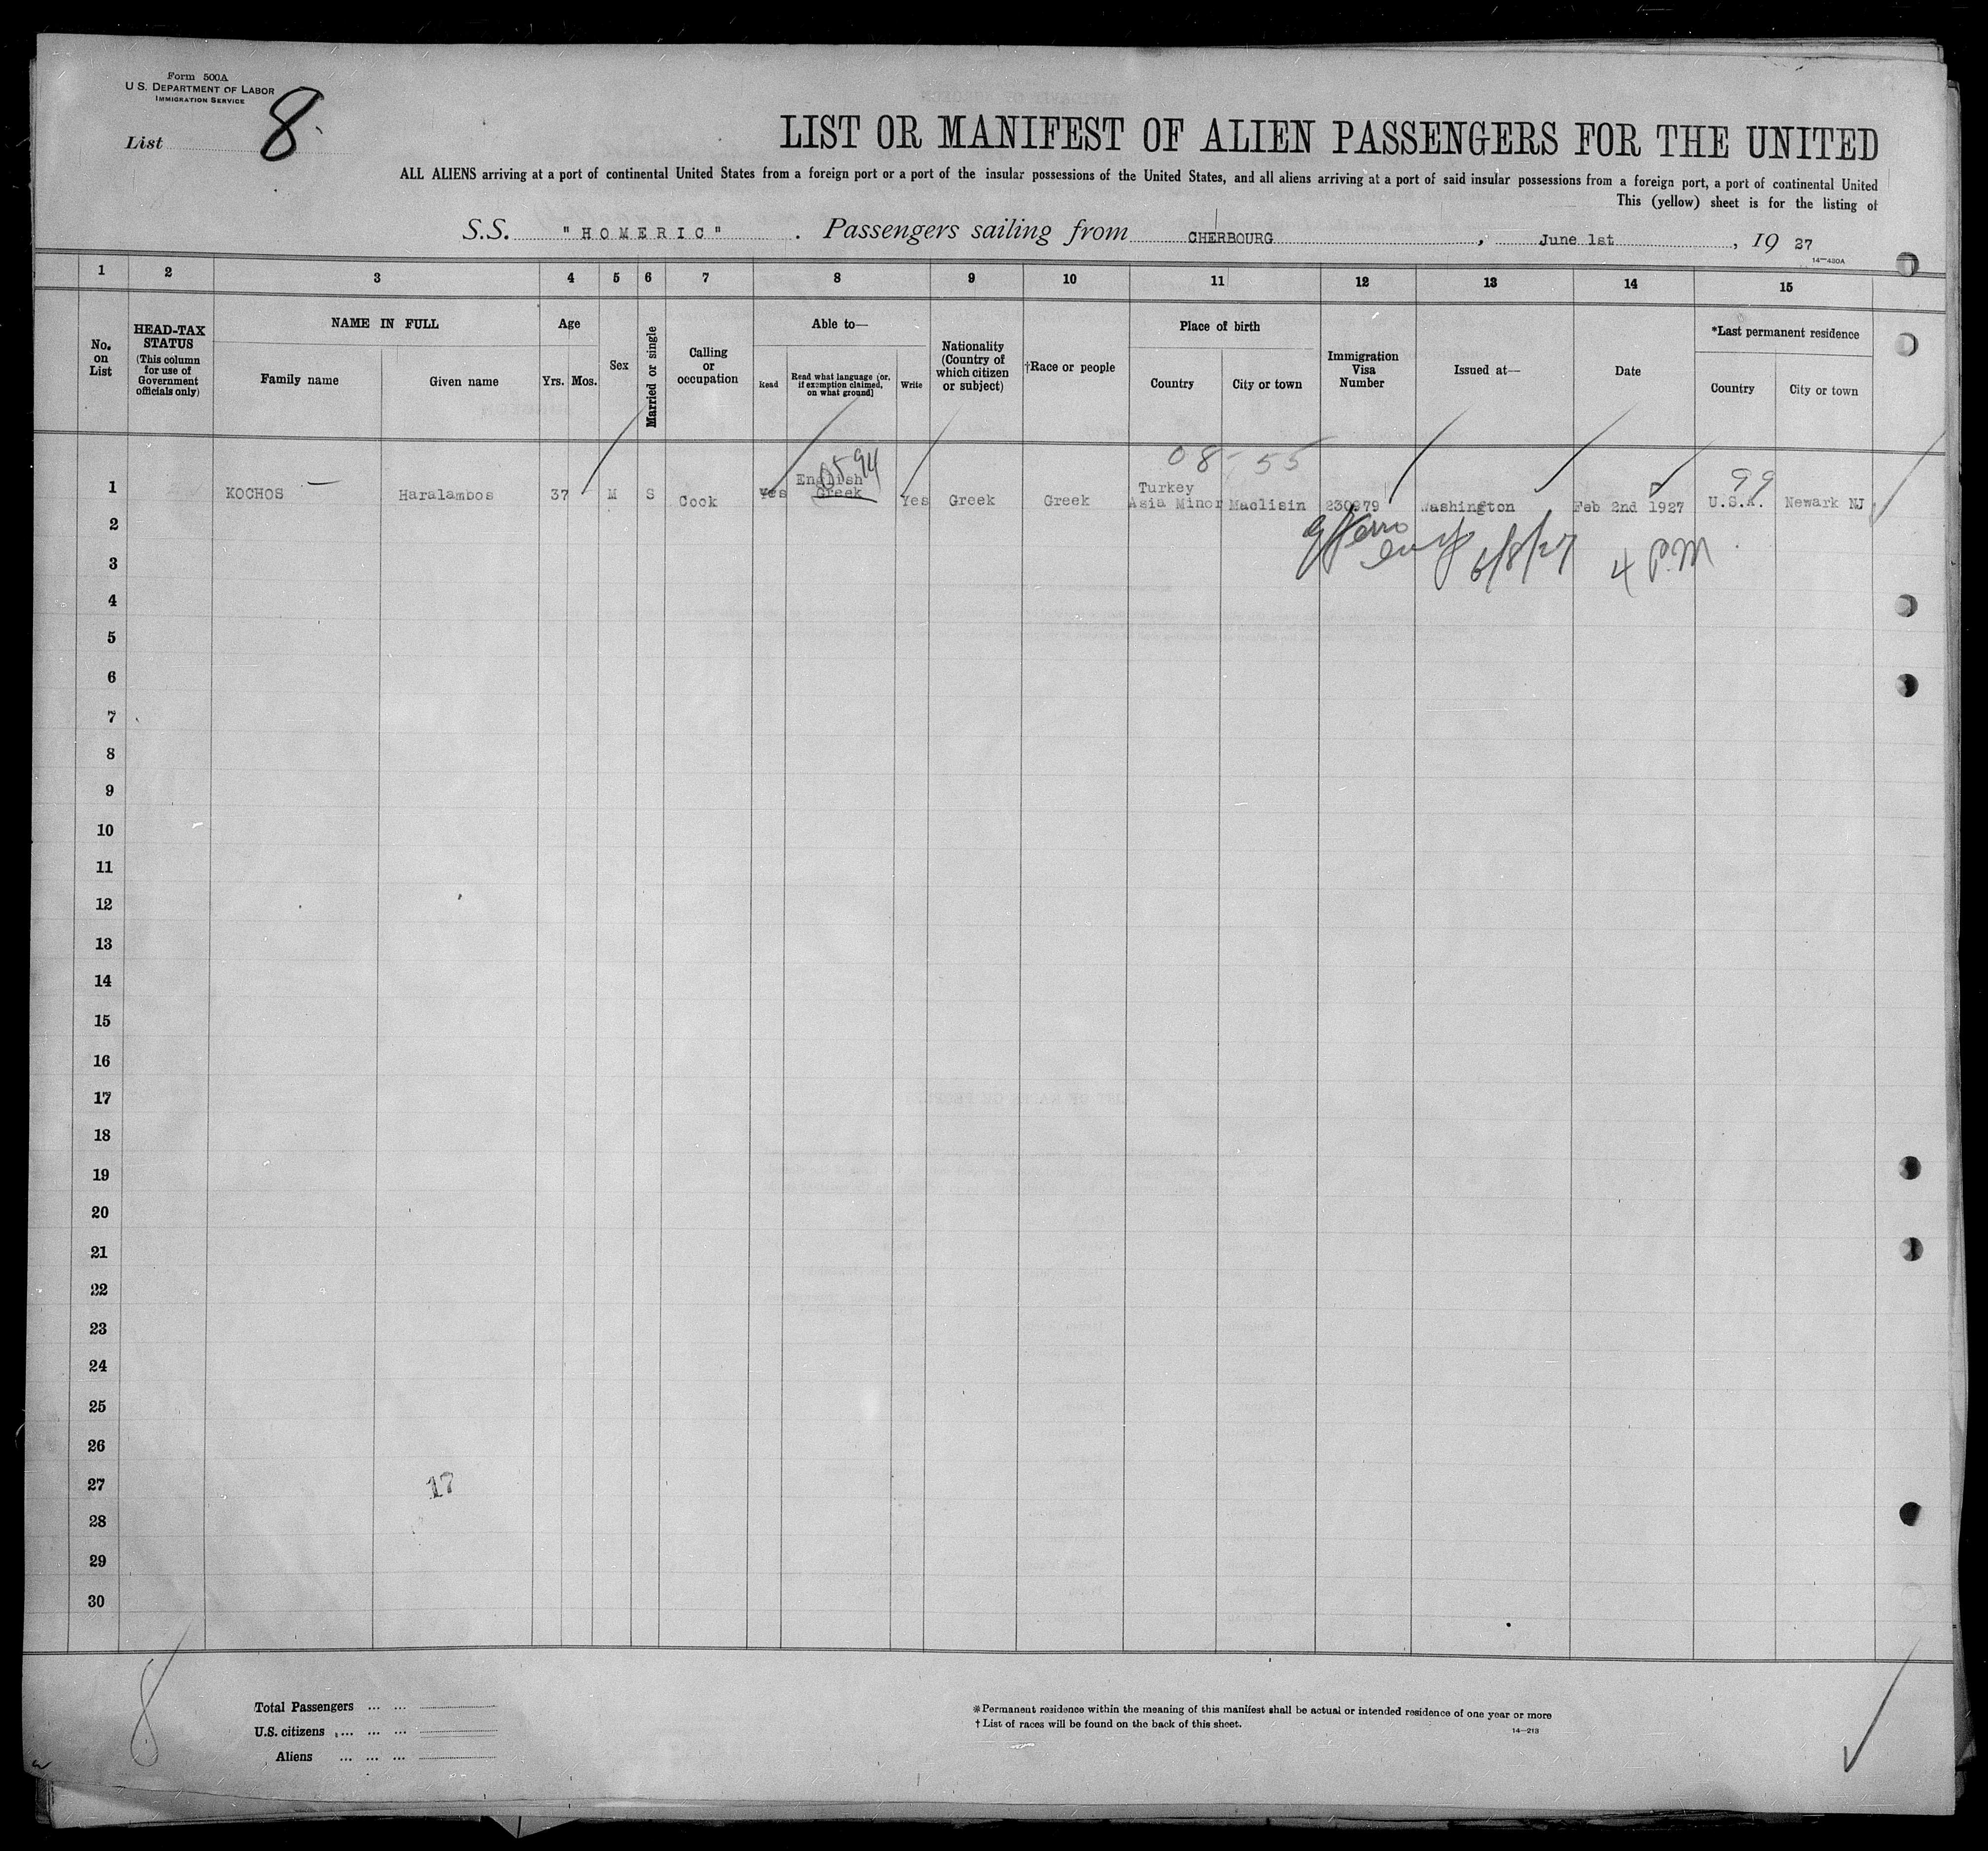 Form 500A
U. S. DEPARTMENT OF LABOR
IMMIGRATION SERVICE
List 8
LIST OR MANIFEST OF ALIEN PASSENGERS FOR THE UNITED
ALL ALIENS arriving at a port of continental United States from a foreign port or a port of the insular possessions of the United States, and all aliens arriving at a port of said insular possessions from a foreign port, a port of continental United
This (yellow) sheet is for the listing of
S.S. "HOMERIC". Passengers sailing from CHERBOURG, June 1st, 19 27
14—430A
1 2 3 4 5 6 7 8 9 10 11 12 13 14 15
No. on List
HEAD-TAX STATUS
(This column for use of Government officials only)
NAME IN FULL
Family name Given name
Age
Yrs. Mos.
Sex
Married or single
Calling or occupation
Able to—
Read
Read what language (or, if exemption claimed, on what ground)
Write
Nationality (Country of which citizen or subject)
†Race or people
Place of birth
Country City or town
Immigration Visa Number
Issued at—
Date
*Last permanent residence
Country City or town
08-55
99
1 KOCHOS Haralambos 37 M S Cook Yes English Greek Yes Greek Greek Turkey Asia Minor Maclisin 230979 Washington Feb 2nd 1927 U.S.A. Newark NJ
6/8/27 4 P.M
2
3
4
5
6
7
8
9
10
11
12
13
14
15
16
17
18
19
20
21
22
23
24
25
26
27
17
28
29
30
8
Total Passengers ... ...
U.S. citizens ... ... ...
Aliens ... ... ...
*Permanent residence within the meaning of this manifest shall be actual or intended residence of one year or more
† List of races will be found on the back of this sheet.
14—213